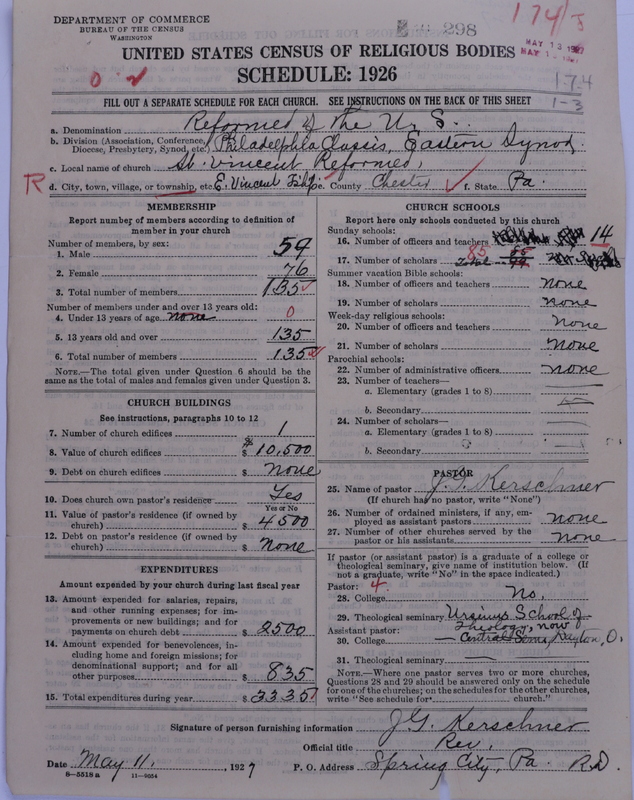 DEPARTMENT OF COMMERCE
BUREAU OF THE CENSUS
WASHINGTON
298
174/5
MAY 13 1927
UNITED STATES CENSUS OF RELIGIOUS BODIES
SCHEDULE: 1926
174
1-3
FILL OUT A SEPARATE SCHEDULE FOR EACH CHURCH. SEE INSTRUCTIONS ON THE BACK OF THIS SHEET
a. Denomination Reformed of the U. S.
b. Division (Association, Conference, Diocese, Presbytery, Synod, etc.) Philadelphia Classis, Eastern Synod.
c. Local name of church St. Vincent Reformed,
R d. City, town, village, or township, etc. E. Vincent e. County Chester f. State Pa.
MEMBERSHIP
Report number of members according to definition of
member in your church
Number of members, by sex:
1. Male 59
2. Female 76
3. Total number of members 135
Number of members under and over 13 years old:
4. Under 13 years of age none 0
5. 13 years old and over 135
6. Total number of members 135
NOTE.—The total given under Question 6 should be the
same as the total of males and females given under Question 3.
CHURCH BUILDINGS
See instructions, paragraphs 10 to 12
7. Number of church edifices 1
8. Value of church edifices $ 10,500
9. Debt on church edifices $ none
10. Does church own pastor's residence Yes
Yes or No
11. Value of pastor's residence (if owned by
church) $ 4500
12. Debt on pastor's residence (if owned by
church) $ none
EXPENDITURES
Amount expended by your church during last fiscal year
13. Amount expended for salaries, repairs,
and other running expenses; for im-
provements or new buildings; and for
payments on church debt $ 2500
14. Amount expended for benevolences, in-
cluding home and foreign missions; for
denominational support; and for all
other purposes $ 835
15. Total expenditures during year $ 3335
CHURCH SCHOOLS
Report here only schools conducted by this church
Sunday schools:
16. Number of officers and teachers 14
17. Number of scholars 85
Summer vacation Bible schools:
18. Number of officers and teachers none
19. Number of scholars none
Week-day religious schools:
20. Number of officers and teachers none
21. Number of scholars none
Parochial schools:
22. Number of administrative officers none
23. Number of teachers—
a. Elementary (grades 1 to 8)
b. Secondary
24. Number of scholars—
a. Elementary (grades 1 to 8)
b. Secondary
PASTOR
25. Name of pastor J. G. Kerschner
(If church has no pastor, write "None")
26. Number of ordained ministers, if any, em-
ployed as assistant pastors none
27. Number of other churches served by the
pastor or his assistants none
If pastor (or assistant pastor) is a graduate of a college or
theological seminary, give name of institution below. (If
not a graduate, write "No" in the space indicated.)
Pastor: 4
28. College No.
29. Theological seminary Ursinus School of
Theology, now
Assistant pastor:
30. College Central Sem, Dayton, O.
31. Theological seminary
NOTE.—Where one pastor serves two or more churches,
Questions 28 and 29 should be answered only on the schedule
for one of the churches; on the schedules for the other churches,
write "See schedule for church."
Signature of person furnishing information J. G. Kerschner
Official title Rev.
Date May 11, 1927 P. O. Address Spring City, Pa. RD.
8-5518 a 11-9034